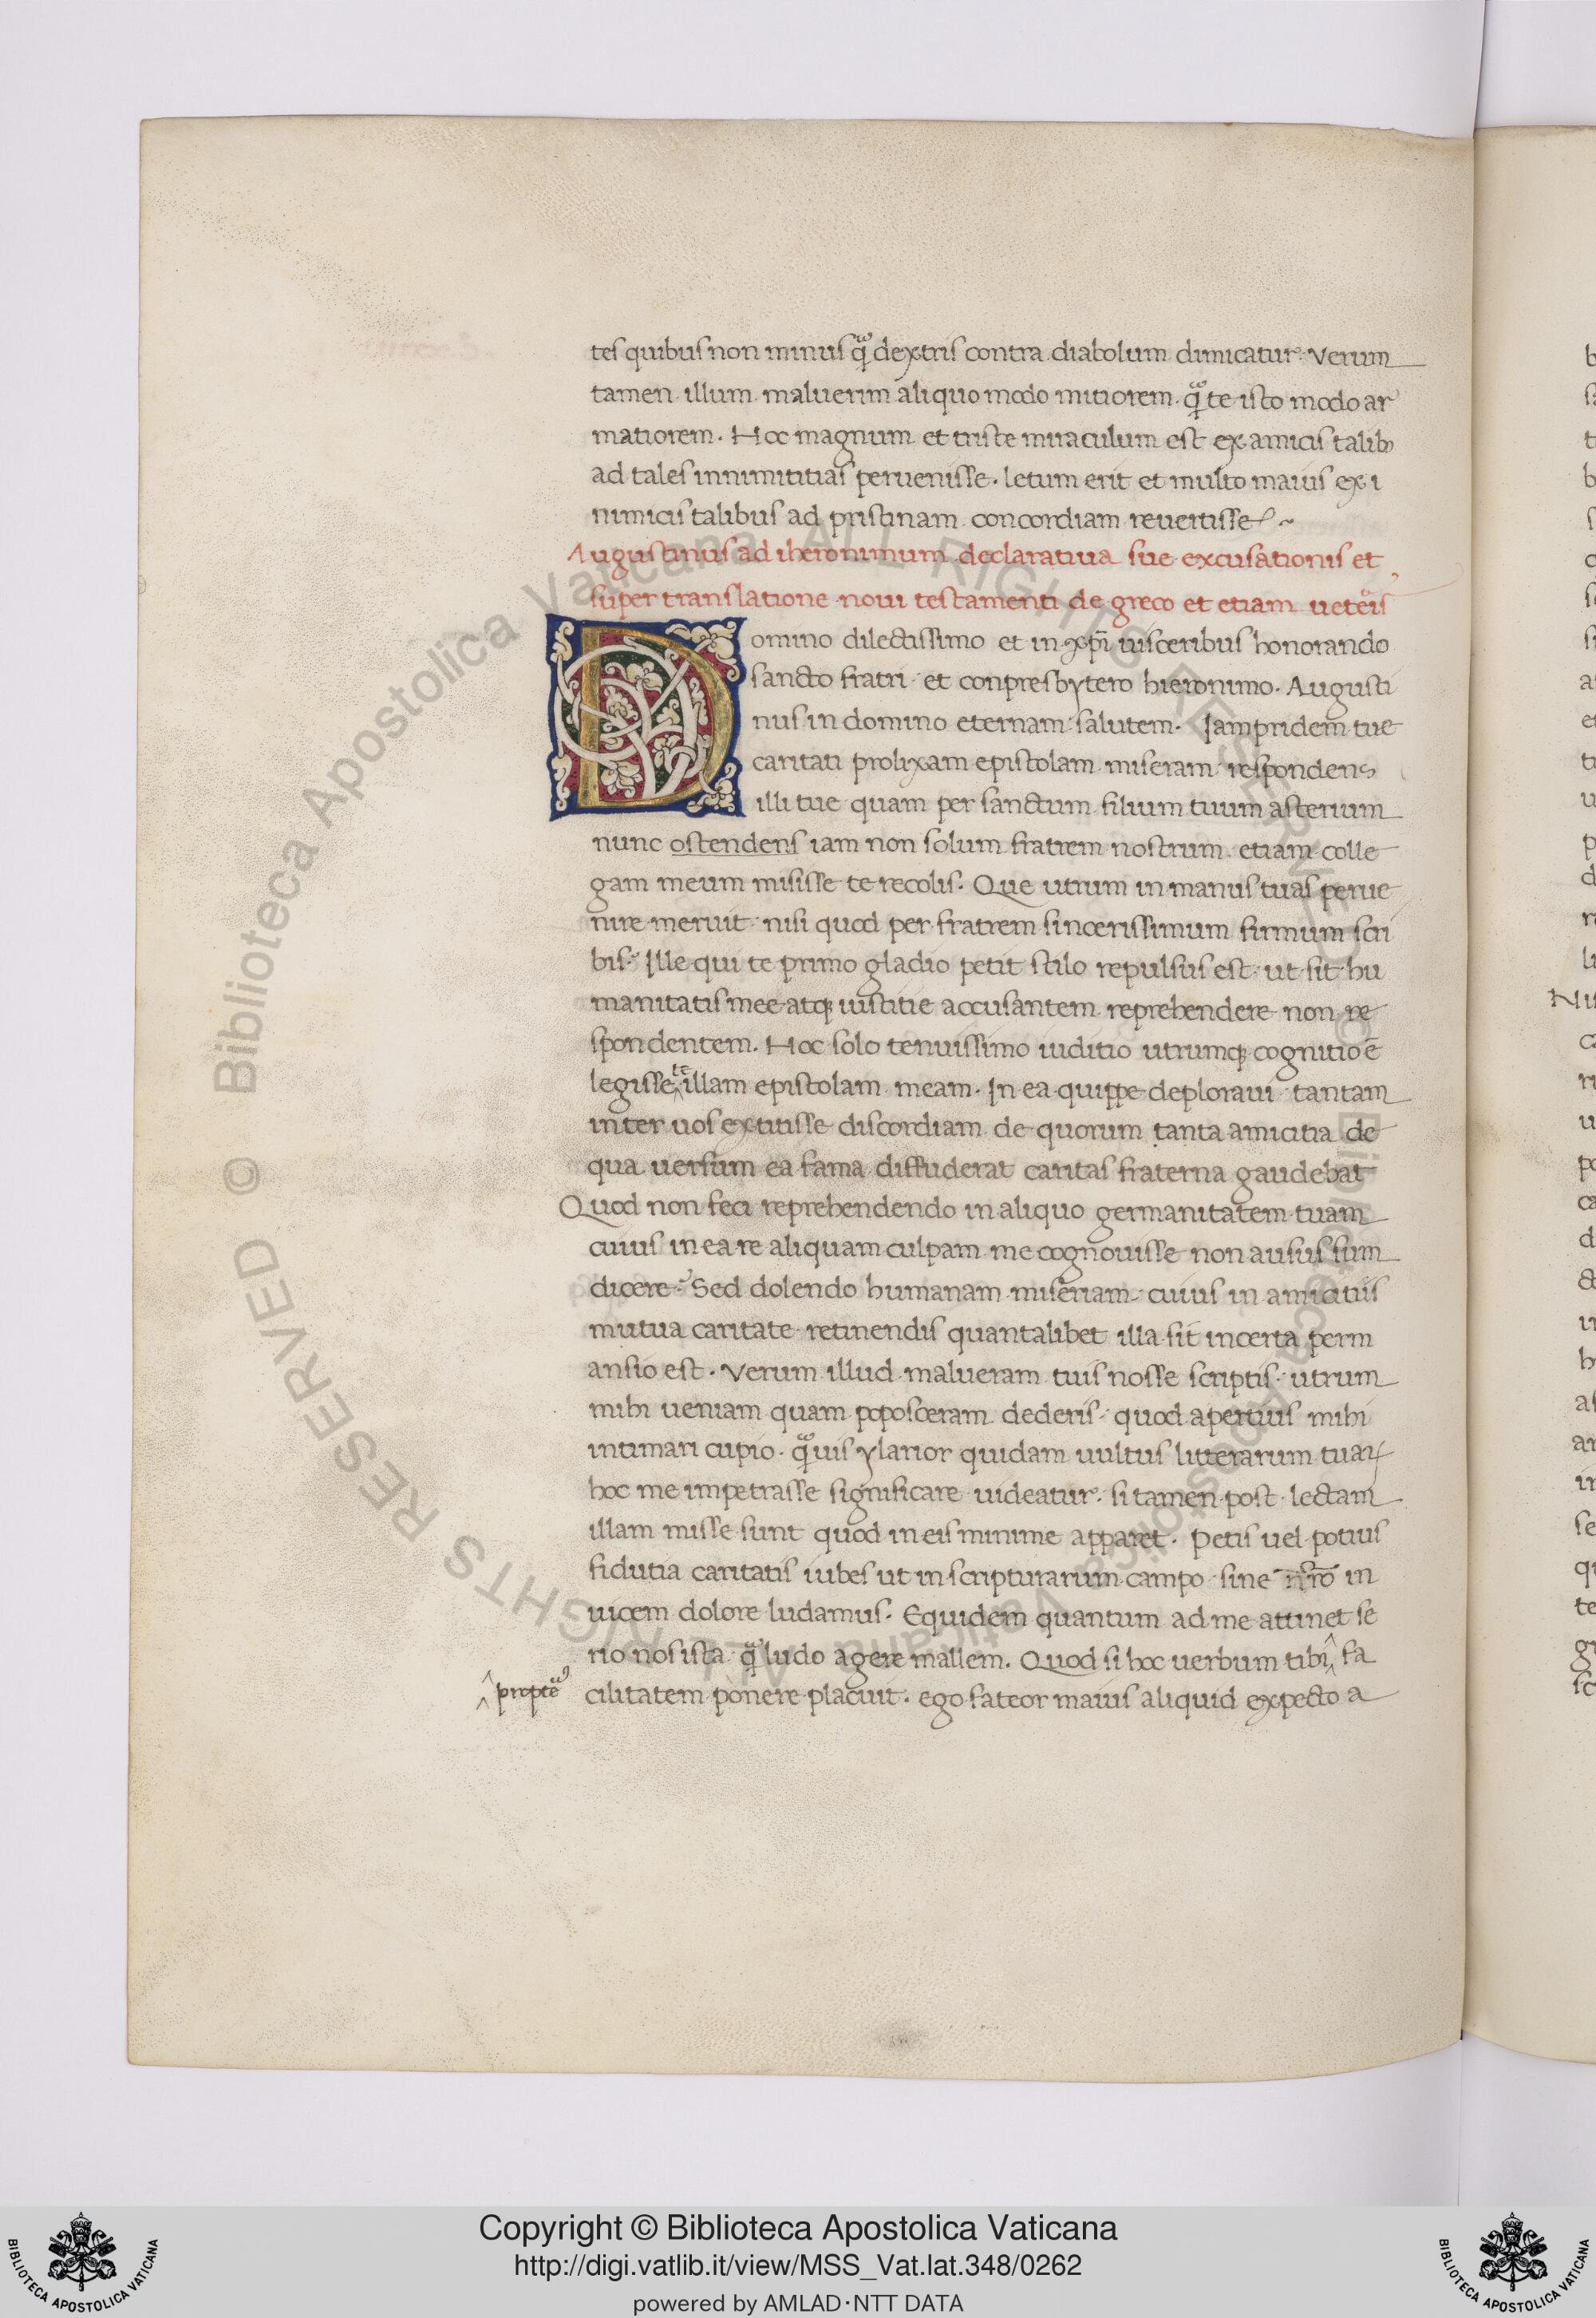 tes quibus non minus q̃ dextris contra diabolum dimicatur. Verum
tamen illum maluerim aliquo modo mitiorem. q̃ te isto modo ar
matiorem. Hoc magnum et triste miraculum est ex amicis talib;
ad tales innimititias peruenisse. letum erit et multo maius ex i
nimicis talibus ad pristinam concordiam reuertisse ~
Augustinus ad iheronimum declaratiua sue excusationis et
super translatione noui testamenti de greco et etiam ueteris
Domino dilectissimo et in xp̄i uisceribus honorando
sancto fratri et conpresbytero hieronimo. Augusti
nus in domino eternam salutem. Iampridem tue
caritati prolixam epistolam miseram respondens
illi tue quam per sanctum filium tuum asterium
nunc ostendens iam non solum fratrem nostrum etiam colle
gam meum misisse te recolis. Que utrum in manus tuas perue
nire meruit nisi quod per fratrem sincerissimum firmum scri
bis. Ille qui te primo gladio petit stilo repulsus est ut sit hu
manitatis mee atq; iustitie accusantem reprehendere non re
spondentem. Hoc solo tenuissimo iuditio utrumq; cognitioē
legisse te illam epistolam meam. In ea quippe deploraui tantam
inter uos extitisse discordiam de quorum tanta amicitia de
qua uersum ea fama diffuderat caritas fraterna gaudebat
Quod non feci reprehendendo in aliquo germanitatem tuam
cuius in ea re aliquam culpam me cognouisse non ausus sum
dicere. Sed dolendo humanam miseriam cuius in amicitiis
mutua caritate retinendis quantalibet illa sit incerta perm
ansio est. Verum illud malueram tuis nosse scriptis utrum
mihi ueniam quam poposceram dederis quod apertius mihi
intimari cupio. q̃uis ylarior quidam uultus litterarum tuaꝝ
hoc me impetrasse significare uideatur. si tamen post lectam
illam misse sunt quod in eis minime apparet. Petis uel potius
fidutia caritatis iubes ut in scripturarum campo sine n̄ro in
uicem dolore ludamus. Equidem quantum ad me attinet se
rio nos ista q̃ ludo agere mallem. Quod si hoc uerbum tibi fa
propte
cilitatem ponere placuit. ego fateor maius aliquid expecto a
Copyright © Biblioteca Apostolica Vaticana
http://digi.vatlib.it/view/MSS_Vat.lat.348/0262
powered by AMLAD·NTT DATA
BIBLIOTECA APOSTOLICA VATICANA
BIBLIOTECA APOSTOLICA VATICANA
© Biblioteca Apostolica Vaticana ALL RIGHTS RESERVED
© Biblioteca Apostolica Vaticana ALL RIGHTS RESERVED